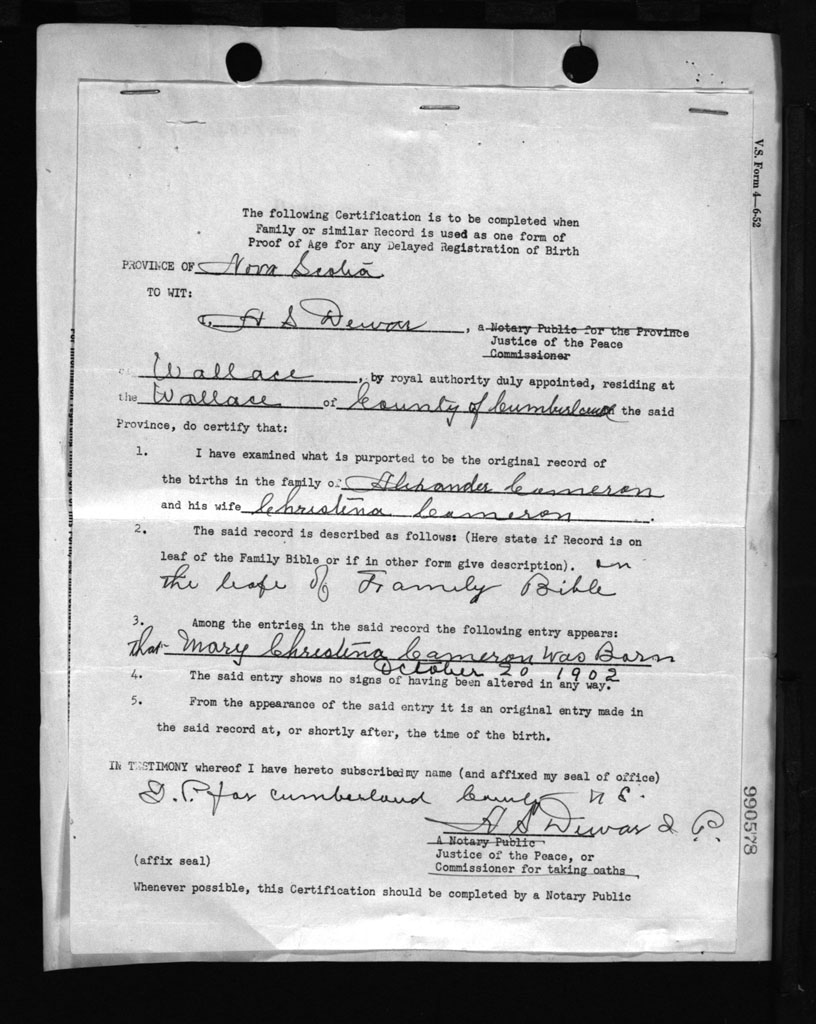 The following Certification is to be completed when
Family or similar Record is used as one form of
Proof of Age for any Delayed Registration of Birth
PROVINCE OF Nova Scotia
TO WIT:
H S Dewar, a Notary Public for the Province
Justice of the Peace
Commissioner
Wallace, by royal authority duly appointed, residing at
the Wallace of County of Cumberland the said
Province, do certify that:
1. I have examined what is purported to be the original record of
the births in the family of Alexander Cameron
and his wife Christina Cameron.
2. The said record is described as follows: (Here state if Record is on
leaf of the Family Bible or if in other form give description). on
the leafe of Framely Bible
3. Among the entries in the said record the following entry appears:
that Mary Christina Cameron Was Born
October 20 1902
4. The said entry shows no signs of having been altered in any way.
5. From the appearance of the said entry it is an original entry made in
the said record at, or shortly after, the time of the birth.
IN TESTIMONY whereof I have hereto subscribed my name (and affixed my seal of office)
J. P. for Cumberland County N S.
H S Dewar J P.
A Notary Public
Justice of the Peace, or
(affix seal) Commissioner for taking oaths
Whenever possible, this Certification should be completed by a Notary Public
V.S. Form 4—6-52
990578